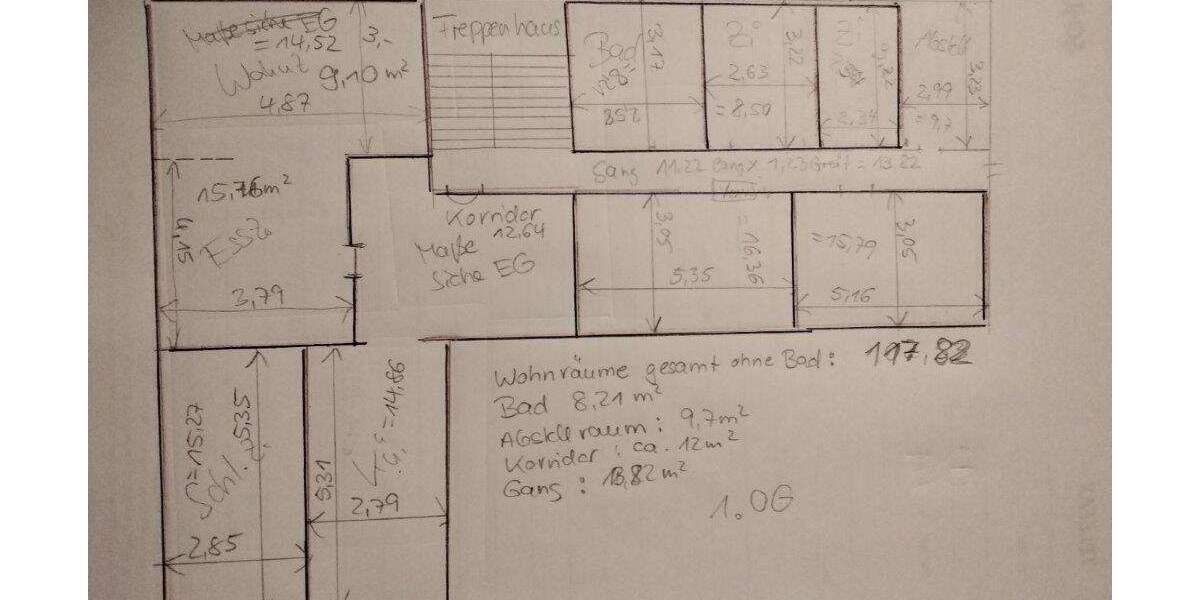 Maße siehe EG
= 14,52
3,-
Wohnz 9,10 m²
4,87
Treppenhaus
Bad
8,21
3,17
258
Zi
3,22
2,63
= 8,50
Zi
2,34
Abstell
3,23
2,99
= 9,7
Gang 11,22 lang x 1,23 breit = 13,22
15,76 m²
4,15
Essz
3,79
Korridor
12,64
Maße
siehe EG
3,05
= 16,36
5,35
= 15,79
3,05
5,16
Wohnräume gesamt ohne Bad: 117,82
Bad 8,21 m²
Abstellraum: 9,7 m²
Korridor: ca. 12 m²
Gang: 13,82 m²
1. OG
= 15,27
Schl.
5,35
2,85
5,31
= 14,66
2,79